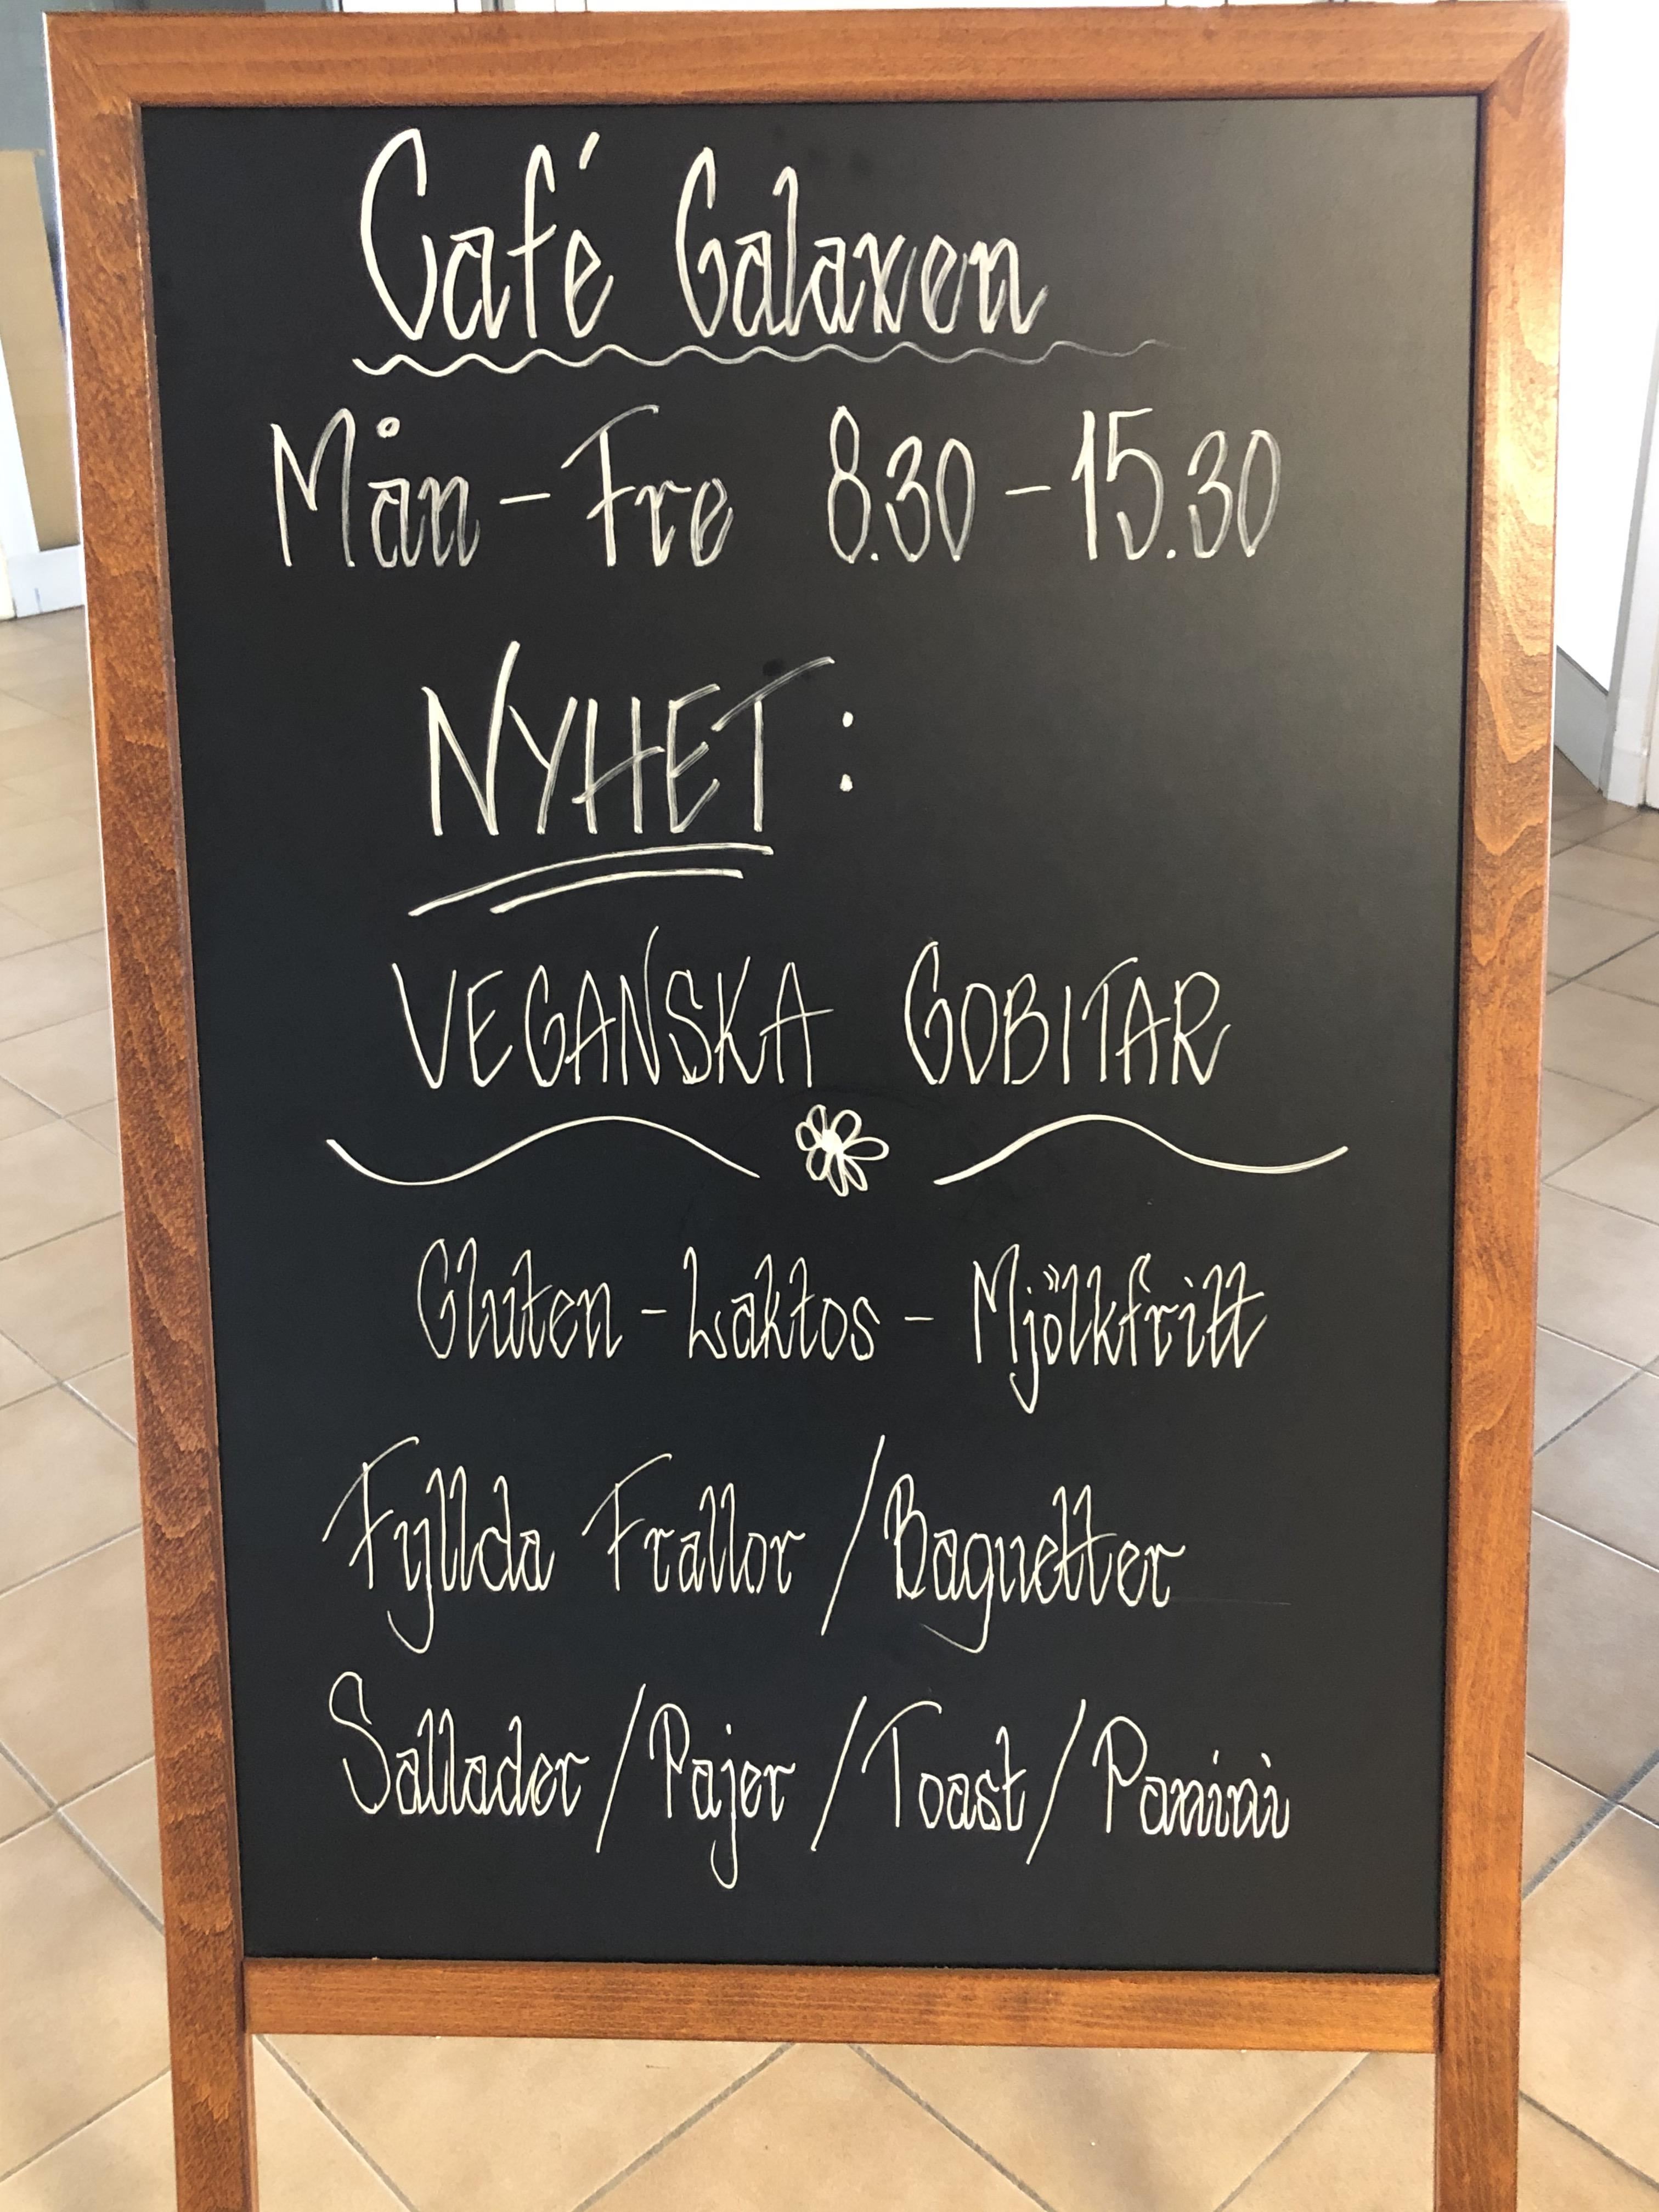 Café Galaxen
Mån - Fre 8.30 - 15.30
NYHET :
VEGANSKA GOBITAR
Gluten - Laktos - Mjölkfritt
Fyllda Frallor / Baguetter
Sallader / Pajer / Toast / Panini